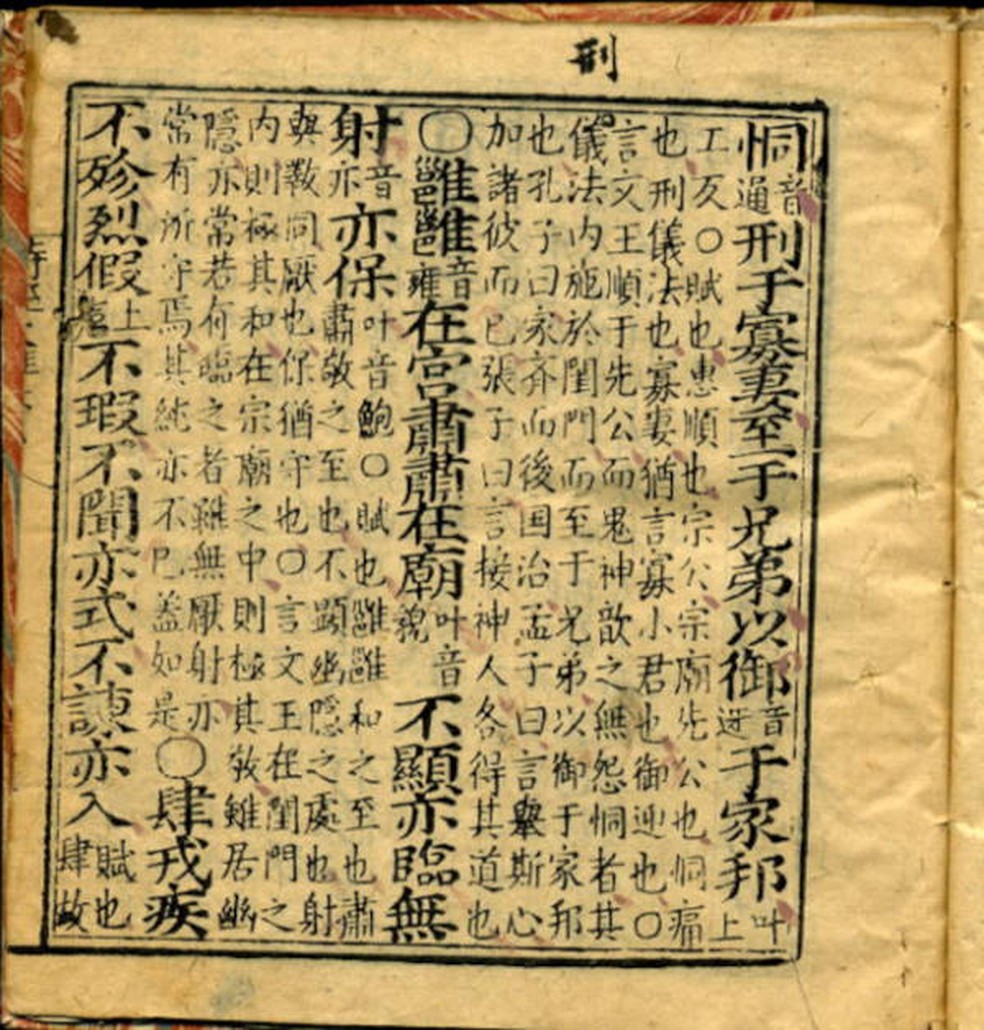 刑
恫音通刑于寡妻至于兄弟以御音迓于家邦叶上
工反○賦也惠順也宗公宗廟先公也恫痛
也刑儀法也寡妻猶言寡小君也御迎也○
言文王順于先公而鬼神歆之無怨恫者其
儀法内施於閨門而至于兄弟以御于家邦
也孔子曰家齊而後国治孟子曰言舉斯心
加諸彼而已張子曰言接神人各得其道也
○雝雝音雍在宮肅肅在廟叶音貌不顯亦臨無
射音亦亦保叶音鮑○賦也雝雝和之至也肅
肅敬之至也不顯幽隱之處也射
與斁同厭也保猶守也○言文王在閨門之
内則極其和在宗廟之中則極其敬雖居幽
隱亦常若何臨之者雖無厭射亦
常有所守焉其純亦不已蓋如是○肆戎疾
不殄烈假上聲不瑕不聞亦式不諫亦入賦也肆故